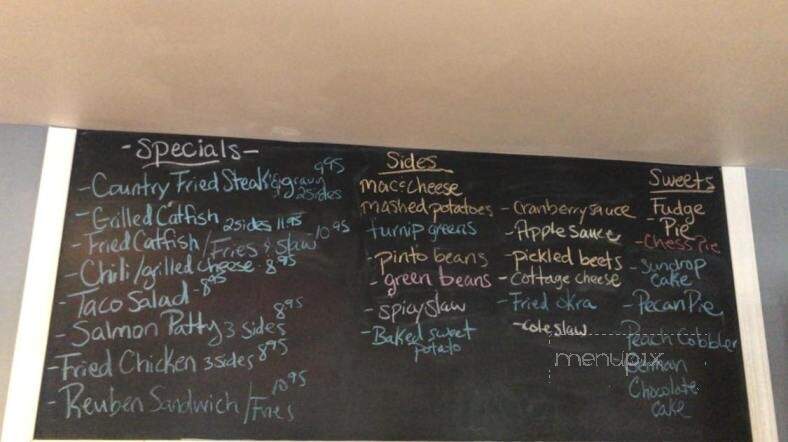 -Specials-
-Country Fried Steak & gravy 2 sides 9 95
-Grilled Catfish 2 sides 11.95
-Fried Catfish/Fries & slaw 10 95
-Chili/grilled cheese 8 95
-Taco Salad 8 95
-Salmon Patty 3 sides 8 95
-Fried Chicken 3 sides 8 95
-Reuben Sandwich/Fries 10 95
Sides
mac&cheese
mashed potatoes
turnip greens
-pinto beans
-green beans
-spicy slaw
-Baked sweet
potato
-Cranberry sauce
-Apple sauce
-pickled beets
-Cottage cheese
-Fried okra
-coleslaw
Sweets
Fudge
Pie
-Chess Pie
-Sundrop
cake
-Pecan Pie
Peach Cobbler
German
Chocolate
cake
menupix